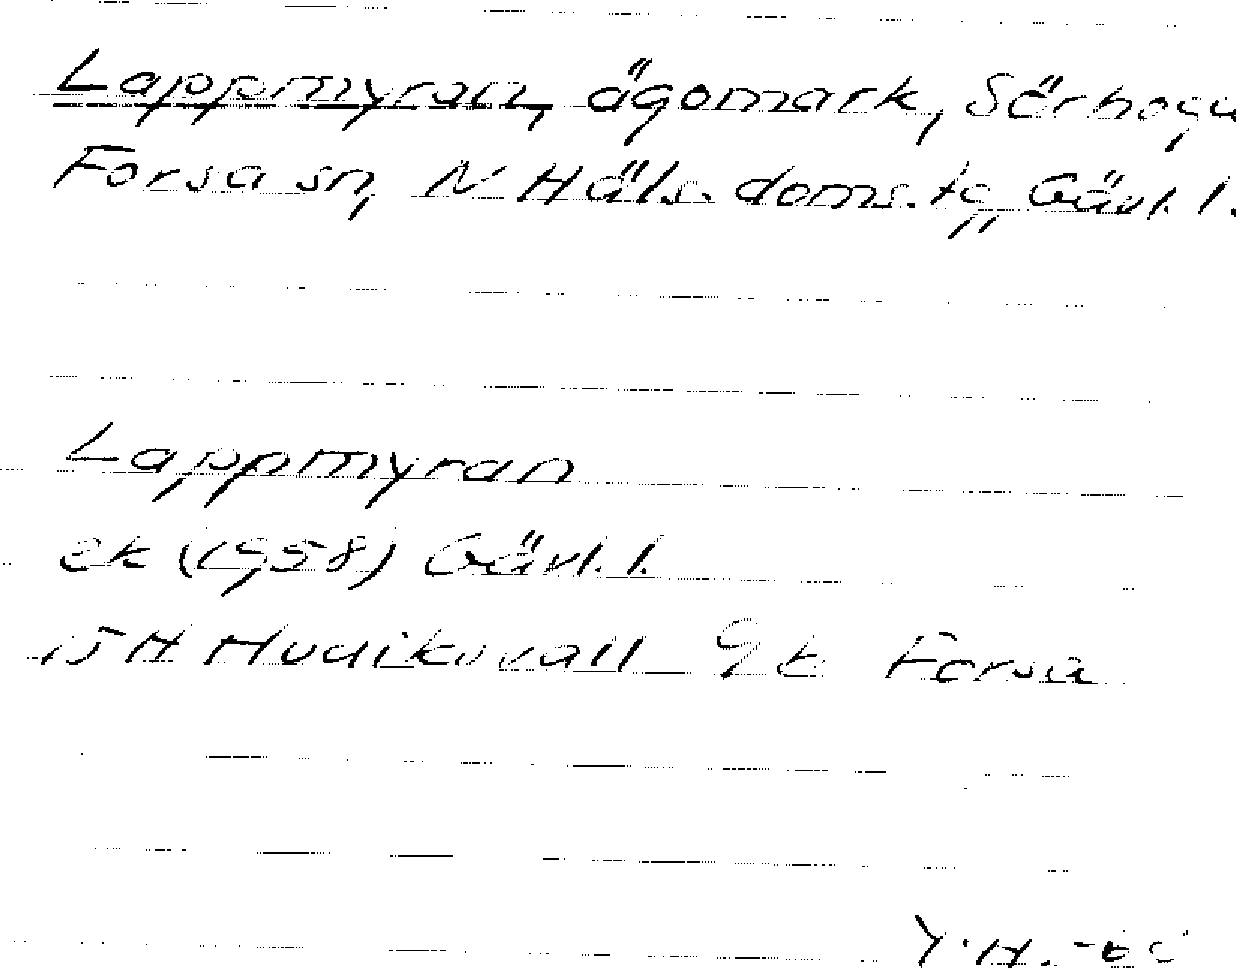 Lappmyran, ägomark, Sörhög
Forsa sn, N Häls. doms.tg, Gävl. l.
Lappmyran
ek (1958) Gävl. l.
15H Hudiksvall 9 e Forsa
Y.H.